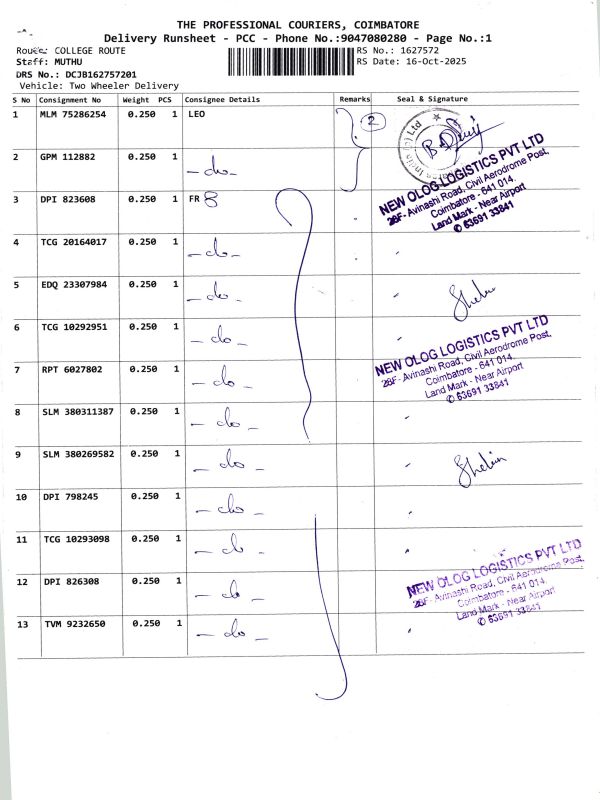 THE PROFESSIONAL COURIERS, COIMBATORE
Delivery Runsheet - PCC - Phone No.:9047080280 - Page No.:1
Route: COLLEGE ROUTE
RS No.: 1627572
Staff: MUTHU
RS Date: 16-Oct-2025
DRS No.: DCJB162757201
Vehicle: Two Wheeler Delivery
S No Consignment No Weight PCS Consignee Details Remarks Seal & Signature
1 MLM 75286254 0.250 1 LEO 2
2 GPM 112882 0.250 1 - do -
NEW OLOG LOGISTICS PVT LTD
28F- Avinashi Road, Civil Aerodrome Post,
Coimbatore - 641 014.
Land Mark - Near Airport
✆ 63691 33841
3 DPI 823608 0.250 1 FR 8
4 TCG 20164017 0.250 1 - do -
5 EDQ 23307984 0.250 1 - do -
6 TCG 10292951 0.250 1 - do -
NEW OLOG LOGISTICS PVT LTD
28F- Avinashi Road, Civil Aerodrome Post,
Coimbatore - 641 014.
Land Mark - Near Airport
✆ 63691 33841
7 RPT 6027802 0.250 1 - do -
8 SLM 380311387 0.250 1 - do -
9 SLM 380269582 0.250 1 - do -
10 DPI 798245 0.250 1 - do -
11 TCG 10293098 0.250 1 - do -
NEW OLOG LOGISTICS PVT LTD
28F- Avinashi Road, Civil Aerodrome Post,
Coimbatore - 641 014.
Land Mark - Near Airport
✆ 63691 33841
12 DPI 826308 0.250 1 - do -
13 TVM 9232650 0.250 1 - do -